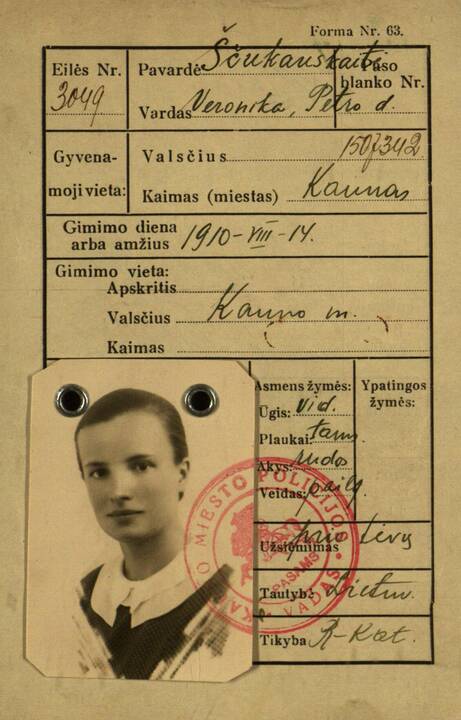 Forma Nr. 63.
Eilės Nr. 3049
Pavardė Ščukauskaitė
Paso blanko Nr. 1507342
Vardas Veronika, Petro d.
Gyvenamoji vieta:
Valsčius
Kaimas (miestas) Kaunas
Gimimo diena arba amžius 1910-VIII-14.
Gimimo vieta:
Apskritis
Valsčius Kauno m.
Kaimas
Asmens žymės:
Ypatingos žymės:
Ūgis: vid.
Plaukai: tams.
Akys: rudos
Veidas: pailg.
Užsiėmimas prie tėvų
Tautybė Lietuv.
Tikyba R-Kat.
MIESTO POLICIJOS
VADAS
PASAMS